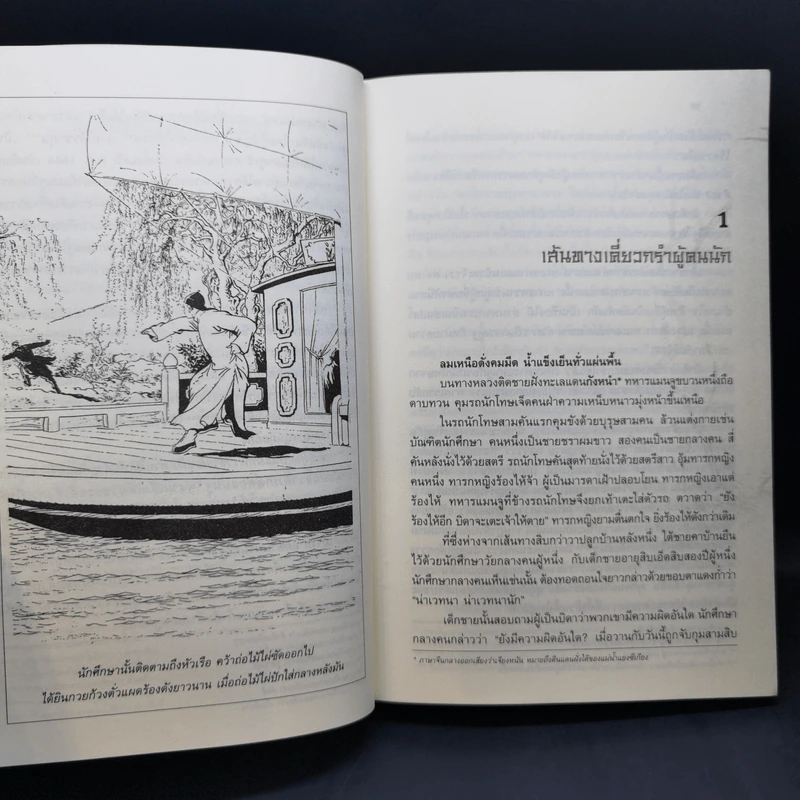 นักศึกษานั้นติดตามถึงหัวเรือ คว้าถ่อไม้ไผ่ซัดออกไป
ได้ยินกวยก้วงตั่วแผดร้องดังยาวนาน เมื่อถ่อไม้ไผ่ปักใส่กลางหลังมัน
1
เส้นทางเคี่ยวกรำผู้คนนัก
ลมเหนือดั่งคมมีด น้ำแข็งเย็นทั่วแผ่นพื้น
บนทางหลวงติดชายฝั่งทะเลแดนกังหนำ* ทหารแมนจูขบวนหนึ่งถือ
ดาบทวน คุมรถนักโทษเจ็ดคนฝ่าความเหน็บหนาวมุ่งหน้าขึ้นเหนือ
ในรถนักโทษสามคันแรกคุมขังด้วยบุรุษสามคน ล้วนแต่งกายเช่น
บัณฑิตนักศึกษา คนหนึ่งเป็นชายชราผมขาว สองคนเป็นชายกลางคน สี่
คันหลังนั่งไว้ด้วยสตรี รถนักโทษคันสุดท้ายนั่งไว้ด้วยสตรีสาว อุ้มทารกหญิง
คนหนึ่ง ทารกหญิงร้องไห้จ้า ผู้เป็นมารดาเฝ้าปลอบโยน ทารกหญิงเอาแต่
ร้องไห้ ทหารแมนจูที่ข้างรถนักโทษจึงยกเท้าเตะใส่ตัวรถ ตวาดว่า "ยัง
ร้องไห้อีก บิดาจะเตะเจ้าให้ตาย" ทารกหญิงยามตื่นตกใจ ยิ่งร้องไห้ดังกว่าเดิม
ที่ซึ่งห่างจากเส้นทางสิบกว่าวาปลูกบ้านหลังหนึ่ง ใต้ชายคาบ้านยืน
ไว้ด้วยนักศึกษาวัยกลางคนผู้หนึ่ง กับเด็กชายอายุสิบเอ็ดสิบสองปีผู้หนึ่ง
นักศึกษากลางคนเห็นเช่นนั้น ต้องทอดถอนใจยาวกล่าวด้วยขอบตาแดงก่ำว่า
"น่าเวทนา น่าเวทนานัก"
เด็กชายนั้นสอบถามผู้เป็นบิดาว่าพวกเขามีความผิดอันใด นักศึกษา
กลางคนกล่าวว่า "ยังมีความผิดอันใด? เมื่อวานกับวันนี้ถูกจับกุมสามสิบ
* ภาษาจีนกลางออกเสียงว่าเจียงหนัน หมายถึงดินแดนฝั่งใต้ของแม่น้ำแยงซีเกียง